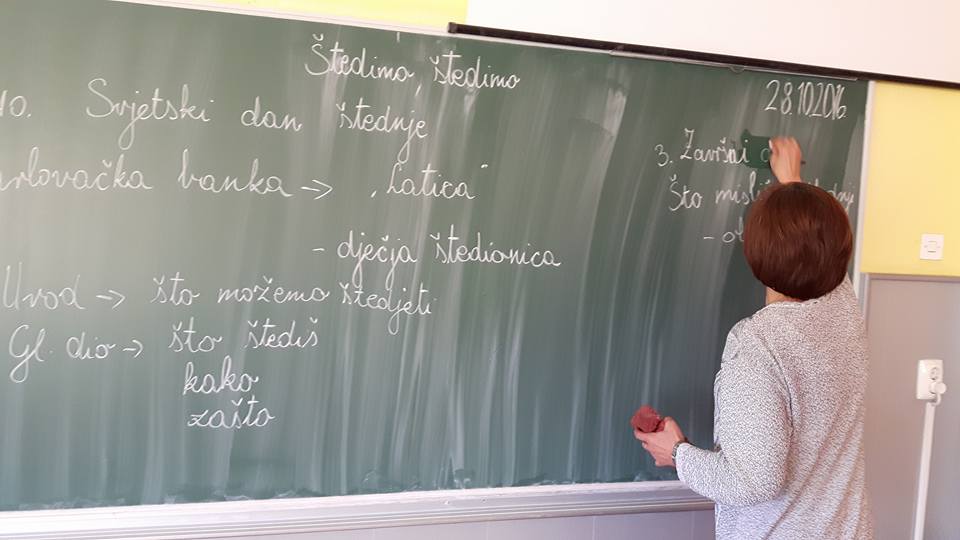 Štedimo, štedimo
28.10.2016
10. Svjetski dan štednje
banka → "Latica"
- dječja štedionica
Uvod → što možemo štedjeti
Gl. dio → što štediš
kako
zašto
3. Završni
Što
-